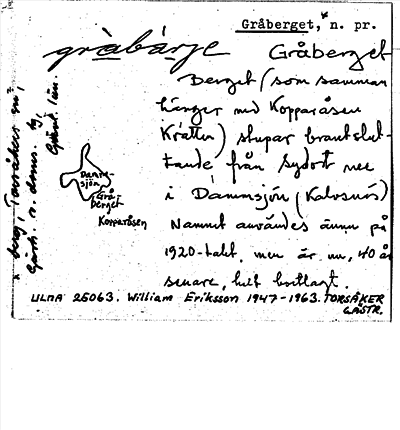 Gråberget,* n. pr.
gràbárje Gråberget
Berget (som samman
hänger med Kopparåsen
Krätten) stupar brantslut-
tande från sydost ner
i Dammsjön (Kalvsnäs)
Namnet användes ännu på
1920-talet, men är nu, 40 år
senare, helt bortlagt.
Damm-
sjön
Grå-
berget
Kopparåsen
* berg, Torsåkers sn,
Gästr. ö. doms. tg,
Gävleb. län.
ULMA 25063. William Eriksson 1947-1963. TORSÅKER
GÄSTR.